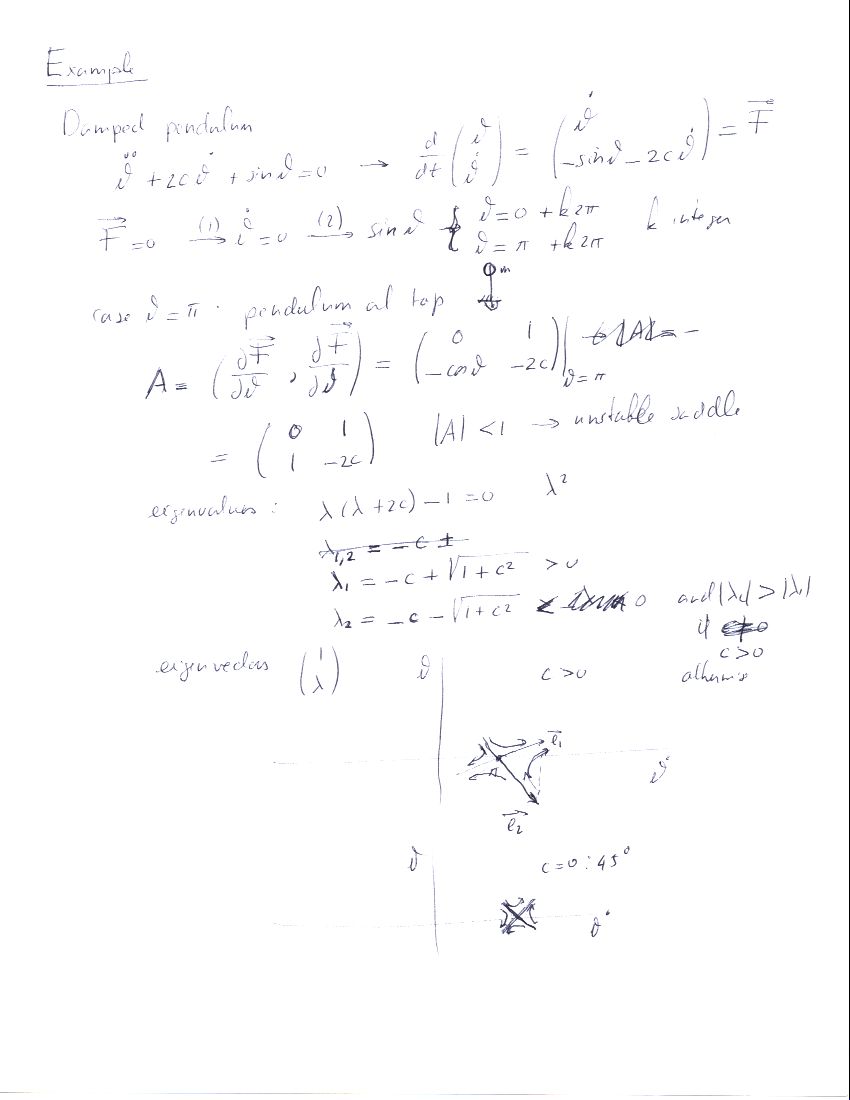 Example
Damped pendulum
ϑ̈ + 2cϑ̇ + sinϑ = 0 → d/dt (ϑ ϑ̇) = (ϑ̇ -sinϑ - 2cϑ̇) = F⃗
F⃗ = 0 (1)→ ϑ̇ = 0 (2)→ sinϑ { ϑ = 0 + k2π
ϑ = π + k2π k integer
m
case ϑ = π : pendulum at top
A = (∂F⃗/∂ϑ , ∂F⃗/∂ϑ̇) = (0 1 -cosϑ -2c)|ϑ=π |A| = -
= (0 1 1 -2c) |A| < 1 → unstable saddle
eigenvalues : λ(λ + 2c) - 1 = 0 λ²
λ1,2 = -c ±
λ1 = -c + √1 + c² > 0
λ2 = -c - √1 + c² < 0 and |λ2| > |λ1|
if
c > 0
eigenvectors (1 λ) ϑ c > 0
e⃗1
π
ϑ̇
e⃗2
ϑ c = 0 : 45°
ϑ̇